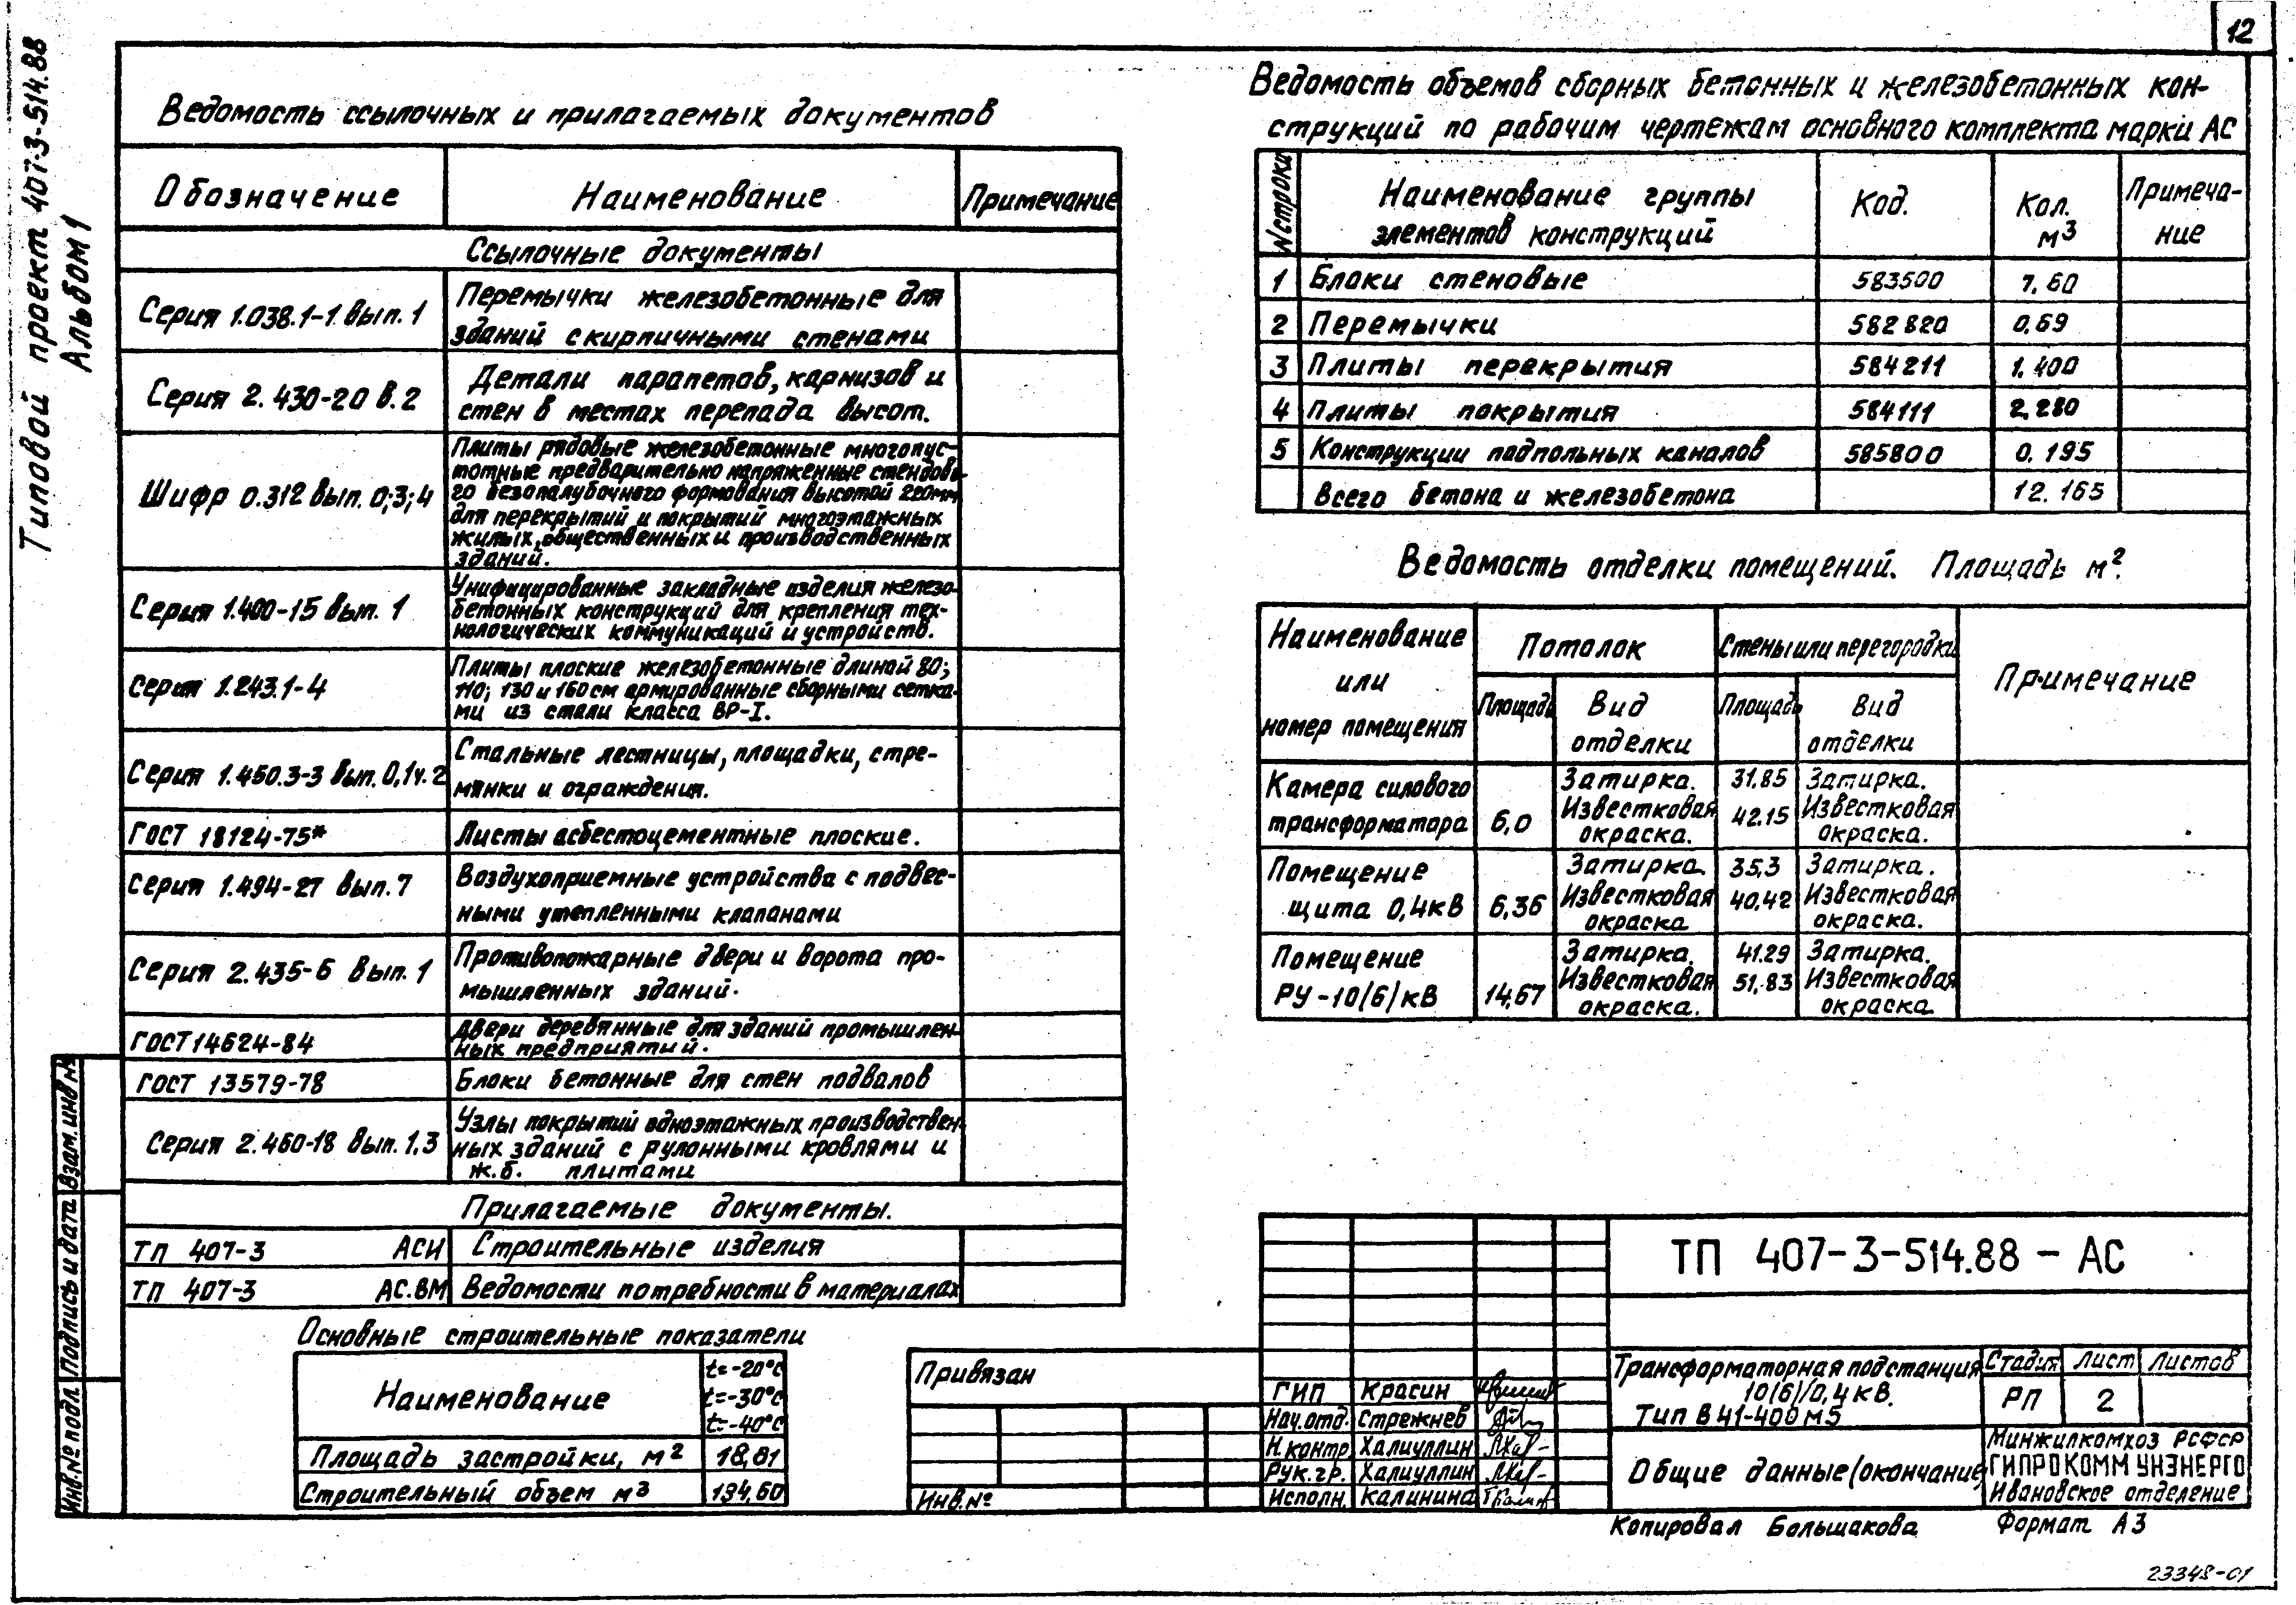 12
Типовой проект 407-3-514.88
Альбом 1
Ведомость ссылочных и прилагаемых документов
Обозначение Наименование Примечание
Ссылочные документы
Серия 1.038.1-1 вып. 1
Перемычки железобетонные для
зданий с кирпичными стенами
Серия 2.430-20 в.2
Детали парапетов, карнизов и
стен в местах перепада высот.
Шифр 0.312 вып. 0;3;4
Плиты рядовые железобетонные многопус-
тотные предварительно напряженные стендово-
го безопалубочного формования высотой 220мм
для перекрытий и покрытий многоэтажных
жилых, общественных и производственных
зданий.
Серия 1.400-15 вып. 1
Унифицированные закладные изделия железо-
бетонных конструкций для крепления тех-
нологических коммуникаций и устройств.
Серия 1.243.1-4
Плиты плоские железобетонные длиной 80;
110; 130 и 160 см армированные сборными сетка-
ми из стали класса ВР-I.
Серия 1.450.3-3 вып. 0,1ч.2
Стальные лестницы, площадки, стре-
мянки и ограждения.
ГОСТ 18124-75*
Листы асбестоцементные плоские.
Серия 1.494-27 вып. 7
Воздухоприемные устройства с подвес-
ными утепленными клапанами
Серия 2.435-6 вып. 1
Противопожарные двери и ворота про-
мышленных зданий.
ГОСТ 14624-84
Двери деревянные для зданий промышлен-
ных предприятий.
ГОСТ 13579-78
Блоки бетонные для стен подвалов
Серия 2.460-18 вып. 1,3
Узлы покрытий одноэтажных производствен-
ных зданий с рулонными кровлями и
ж.б. плитами
Прилагаемые документы.
ТП 407-3 АСИ Строительные изделия
ТП 407-3 АС.ВМ Ведомости потребности в материалах
Основные строительные показатели
Наименование
t=-20°С
t=-30°С
t=-40°С
Площадь застройки, м2 18,81
Строительный объем м3 134,60
Ведомость объемов сборных бетонных и железобетонных кон-
струкций по рабочим чертежам основного комплекта марки АС
№строки
Наименование группы
элементов конструкций
Код.
Кол.
м3
Примеча-
ние
1 Блоки стеновые 583500 7.60
2 Перемычки 582820 0,69
3 Плиты перекрытия 584211 1.400
4 Плиты покрытия 584111 2.280
5 Конструкции подпольных каналов 585800 0.195
Всего бетона и железобетона 12.165
Ведомость отделки помещений. Площадь м2.
Наименование
или
номер помещения
Потолок
Стены или перегородки
Примечание
Площадь
Вид
отделки
Площадь
Вид
отделки
Камера силового
трансформатора
6,0
Затирка.
Известковая
окраска.
31.85
42.15
Затирка.
Известковая
окраска.
Помещение
щита 0,4кВ
6,36
Затирка.
Известковая
окраска
35,3
40,42
Затирка.
Известковая
окраска.
Помещение
РУ-10(6)кВ
14,67
Затирка.
Известковая
окраска.
41.29
51,83
Затирка.
Известковая
окраска.
Привязан
Инв.№
ТП 407-3-514.88 - АС
ГИП Красин
Нач.отд. Стрежнев
Н.контр. Халиуллин
Рук.гр. Халиуллин
Исполн. Калинина
Трансформаторная подстанция
10(6)/0,4кВ.
Тип В41-400м5
Стадия Лист Листов
РП 2
Общие данные (окончание)
Минжилкомхоз РСФСР
ГИПРОКОММУНЭНЕРГО
Ивановское отделение
Копировал Большакова
Формат А3
23348-01
Взам.инв№
Подпись и дата
Инв.№ подл.